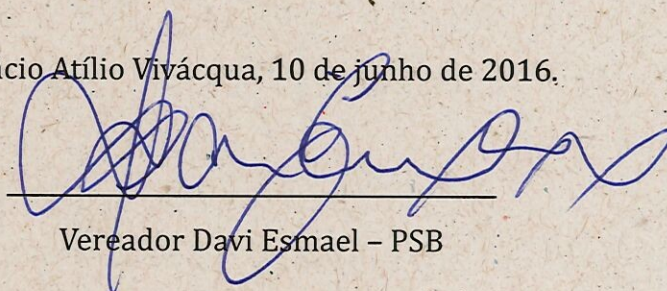 Atílio Vivácqua, 10 de junho de 2016.
Vereador Davi Esmael – PSB